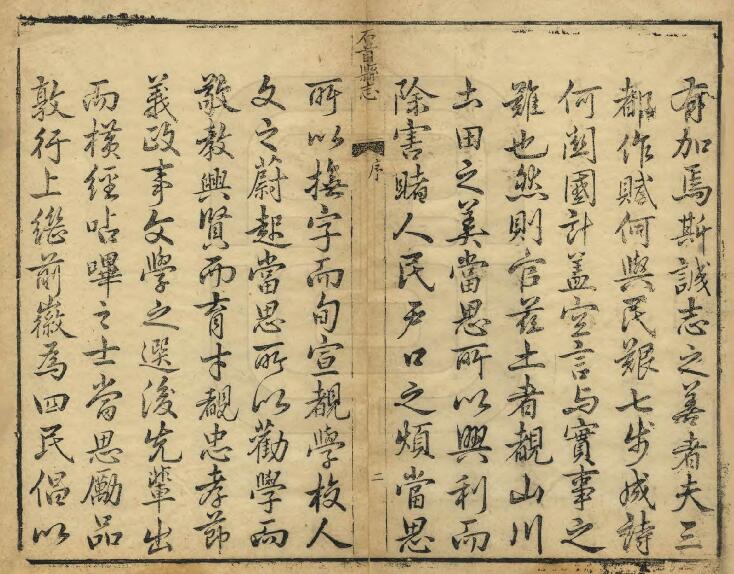 有加焉斯誠志之善者夫三
都作賦何與民艱七步成詩
何關國計盖空言与實事之
難也然則官茲土者覩山川
土田之美當思所以興利而
除害賭人民戶口之煩當思
石首縣志
序
二
所以撫字而旬宣覩學校人
文之蔚起當思所以勸學而
敬敎興賢而育才覩忠孝節
義政事文學之選後先輩出
而橫經呫嗶之士當思勵品
敦行上繼前徽為四民倡以